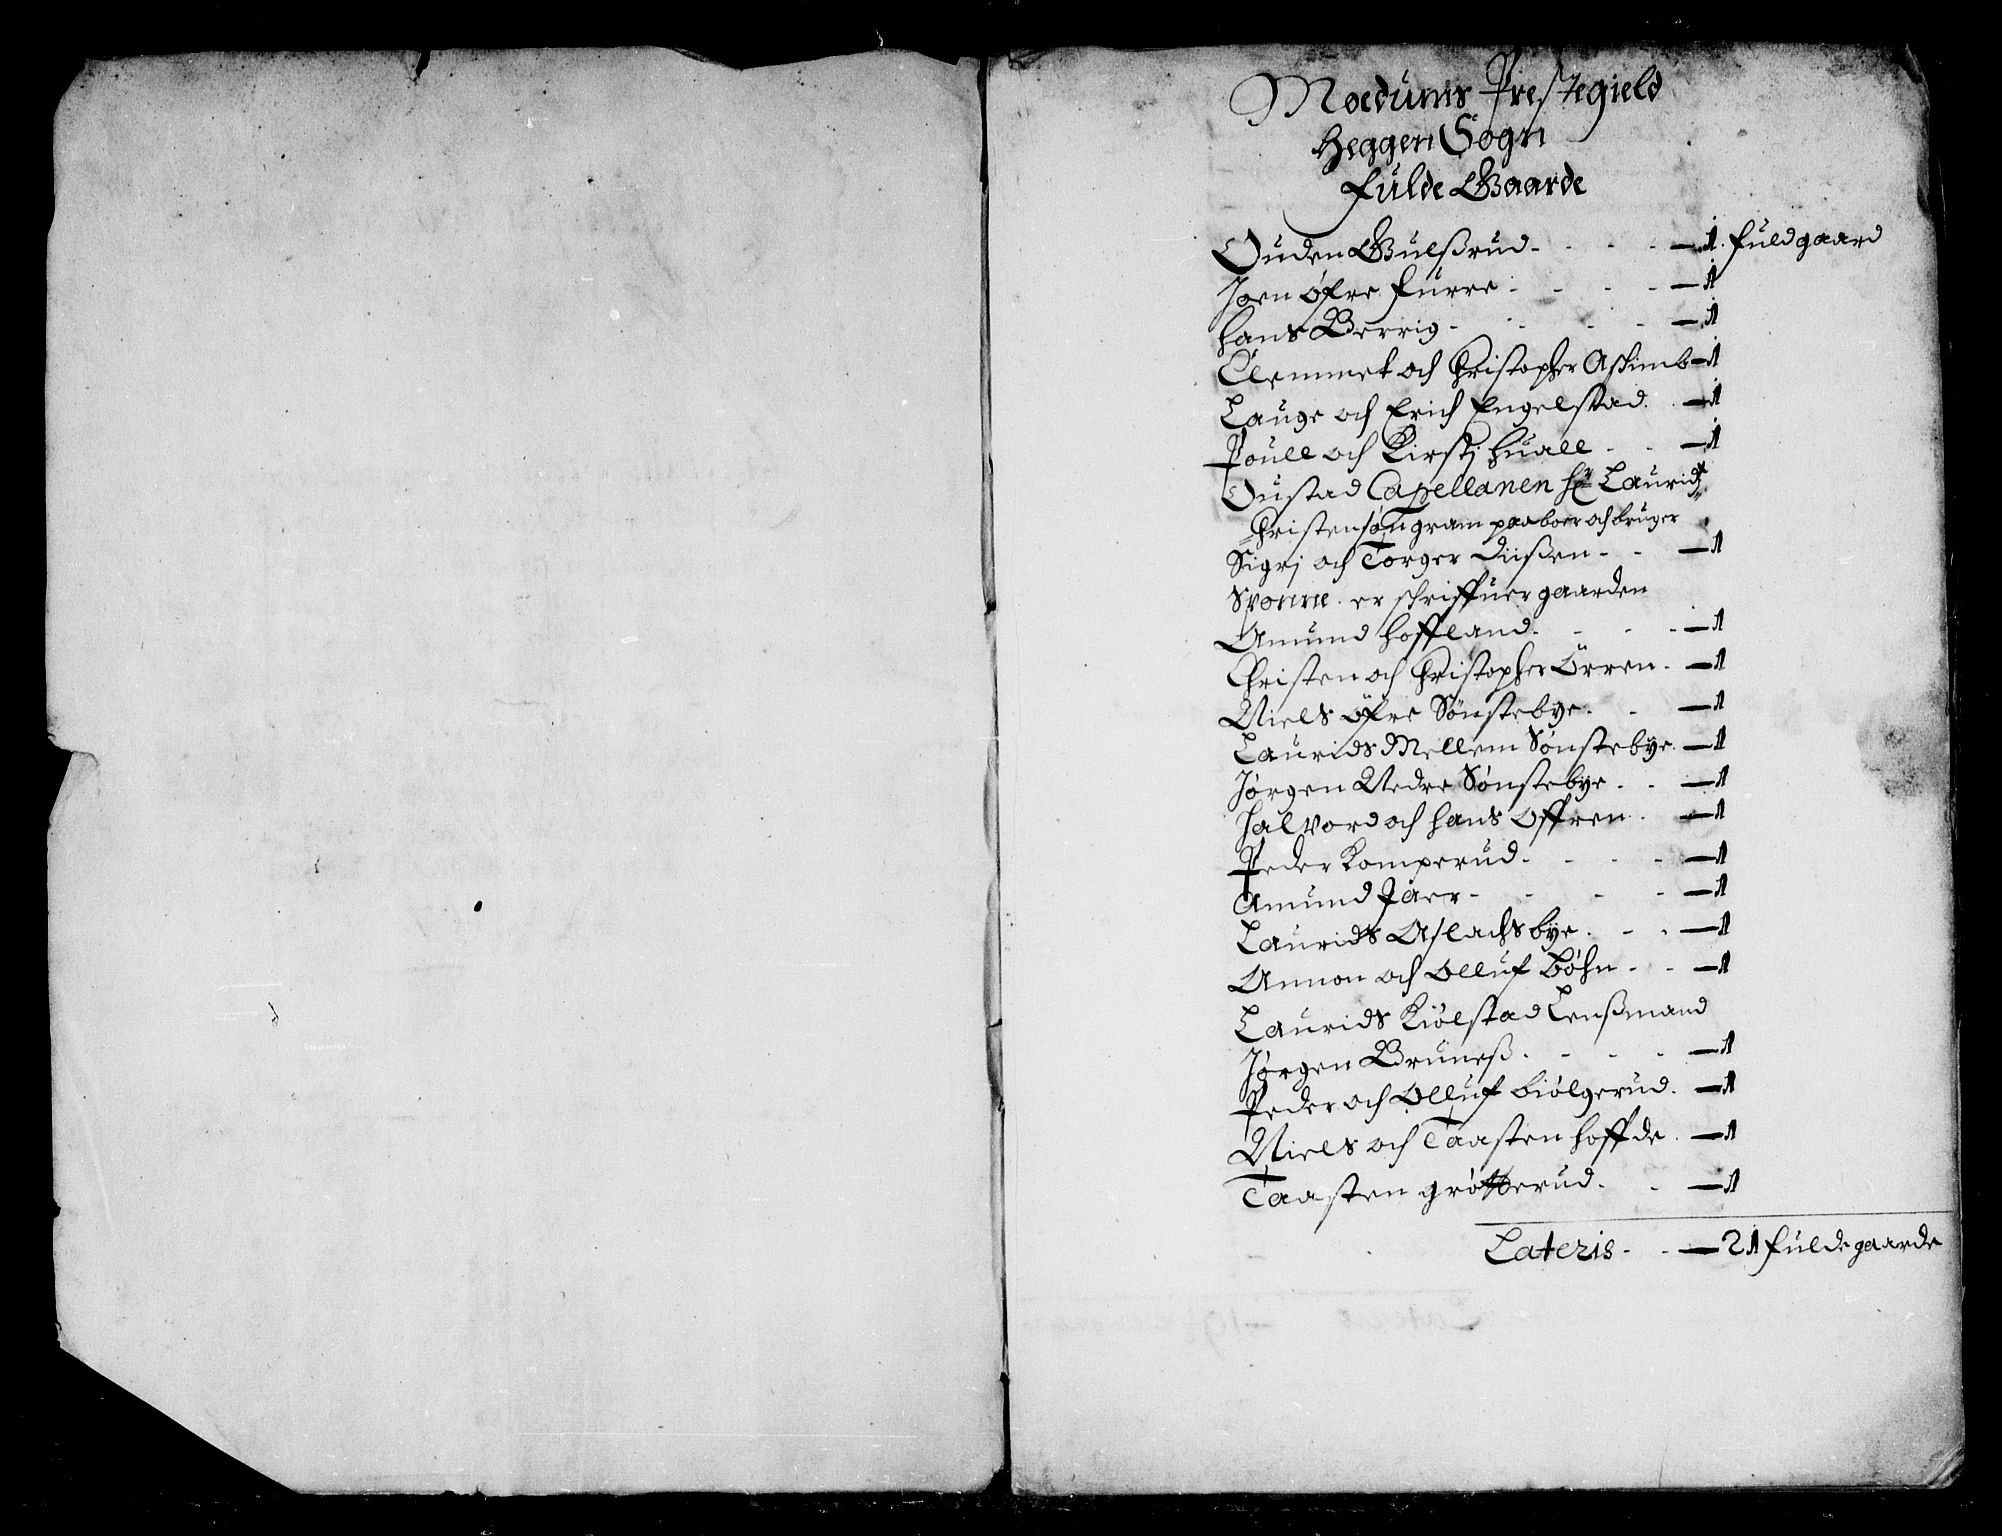 Moedums Prestegield
Heggen Sogn
Fulde Gaarde
Ouden Gulßrud - - - - 1 fuldgaard
Joen øfre furre - - - - 1
Hans Berrig - - - - 1
Clemmet och Christopher Aschimb 1
Lauge och Erich Engelstad - 1
Pouell och Kirstj Huall - - 1
Oustad Capellanen Hr Laurids
Christensøn gram paaboer och bruger
Sigrj och Torger Diißen - - 1
Svonne er schriffuer gaarden
Amund Hoffland - - - - 1
Christen och Christopher Örren - 1
Niels öfre Sönstebye - - 1
Laurids Mellem Sønstebye - 1
Jørgen Nedre Sønstebye - - 1
Halvord och Hans Offren - 1
Peder Komperud - - - - 1
Amund Jaer - - - - 1
Laurids Aslachsbye - - - 1
Annon och Olluf Bøhn - - 1
Laurids Kiølstad Lenßmand
Jørgen Bruneß - - - - 1
Peder och Olluf Biølgerud - 1
Niels och Taasten Hoffde - 1
Taasten grøtterud - - 1
Lateris - - 21 fulde gaarde